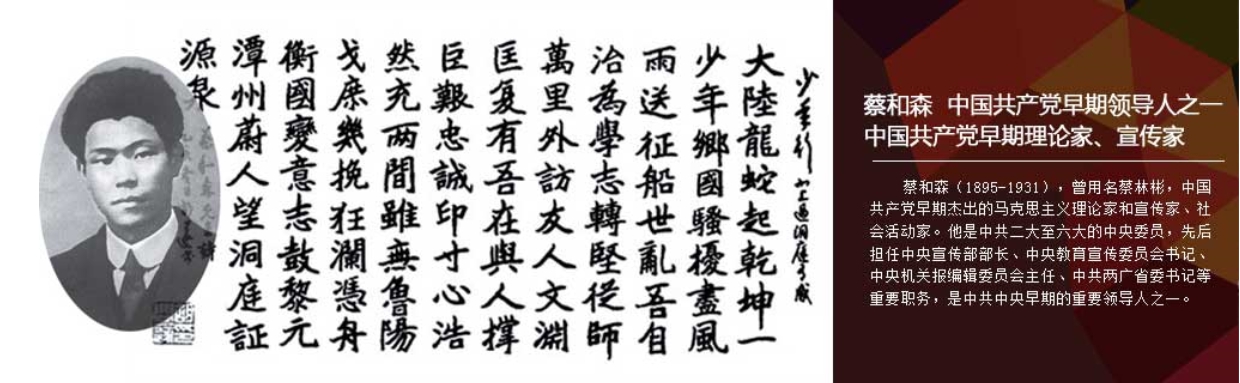 少年行 北上過洞庭有感
大陸龍蛇起乾坤一
少年鄉國騷擾盡風
雨送征船世亂吾自
治為學志轉堅從師
萬里外訪友人文淵
匡复有吾在與人撐
巨艱忠誠印寸心浩
然充两間雖無魯陽
戈庶幾挽狂瀾憑舟
衡國變意志鼓黎元
潭州蔚人望洞庭証
源泉
蔡和森 中国共产党早期领导人之一
中国共产党早期理论家、宣传家
蔡和森（1895-1931），曾用名蔡林彬，中国
共产党早期杰出的马克思主义理论家和宣传家、社
会活动家。他是中共二大至六大的中央委员，先后
担任中央宣传部部长、中央教育宣传委员会书记、
中央机关报编辑委员会主任、中共两广省委书记等
重要职务，是中共中央早期的重要领导人之一。